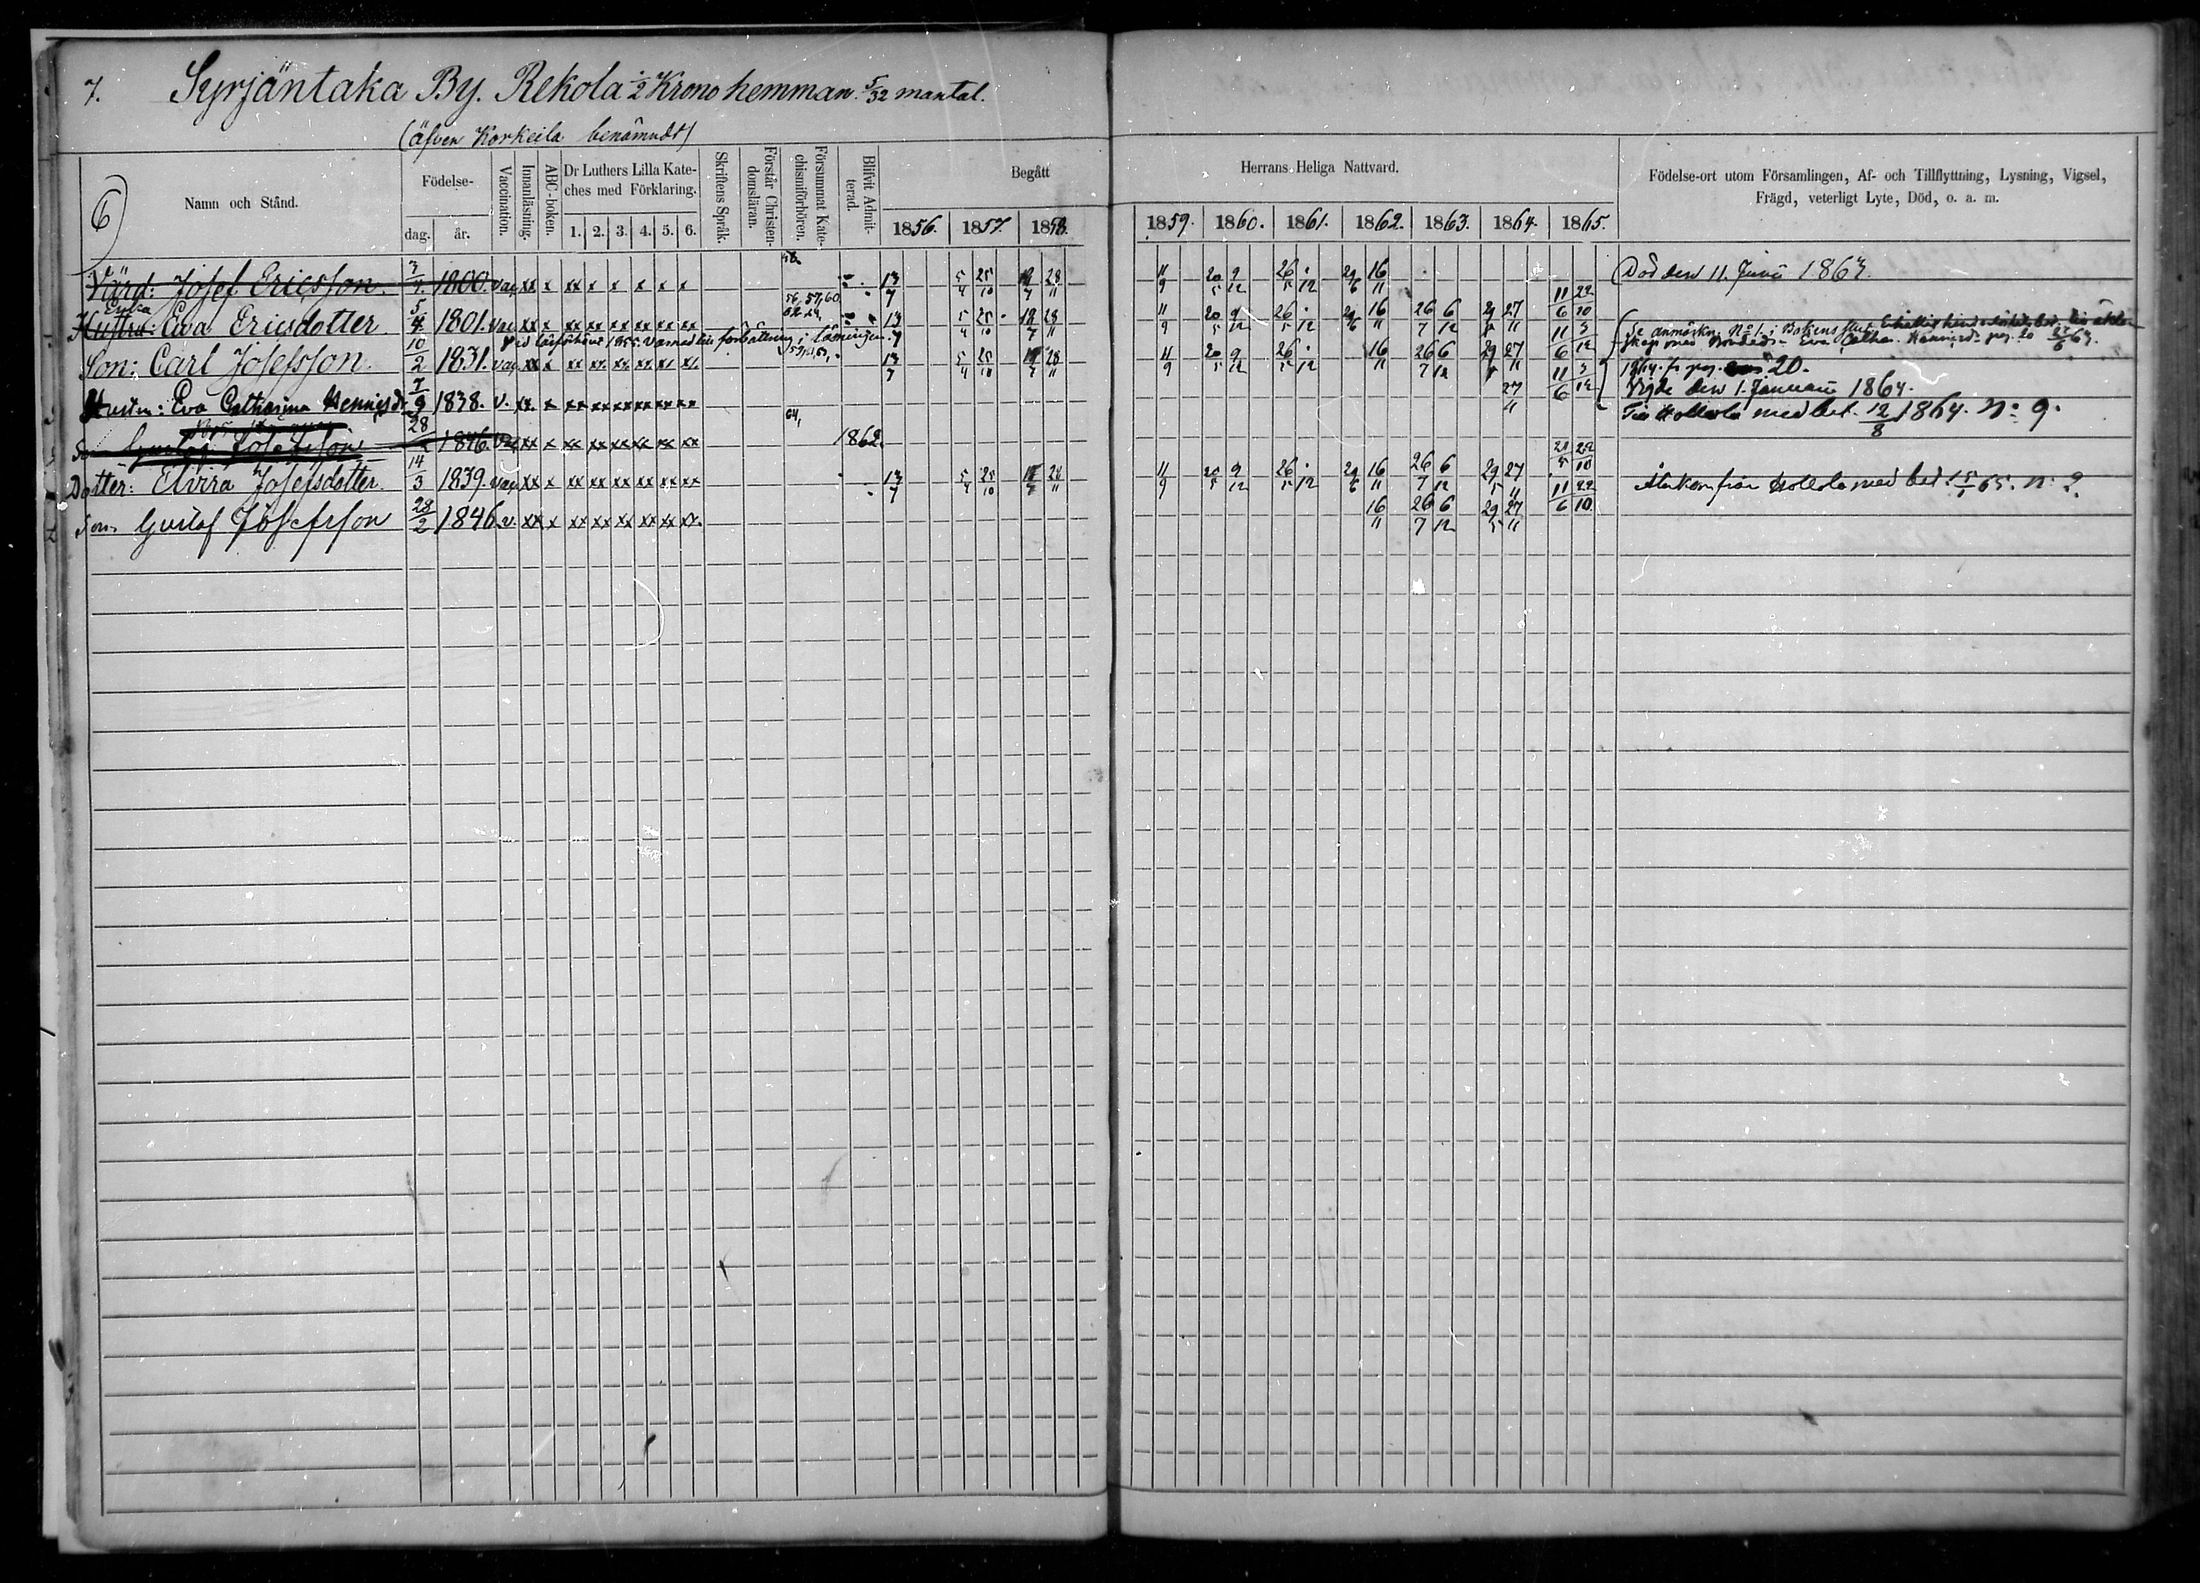 7. Syrjäntaka By. Rekola 1/2 Krono hemman. 5/32 mantal.
(äfven Korkeila benämndt)
6
Namn och Stånd.
Födelse-
dag. år.
Vaccination.
Innanläsning.
ABC-boken.
Dr Luthers Lilla Kate-
ches med Förklaring.
1. 2. 3. 4. 5. 6.
Skriftens Språk.
Förstår Christen-
domsläran.
Försummat Kate-
chismiförhören.
Blifvit Admit-
terad.
Begått
1856. 1857. 1858.
Herrans Heliga Nattvard.
1859. 1860. 1861. 1862. 1863. 1864. 1865.
Födelse-ort utom Församlingen, Af- och Tillflyttning, Lysning, Vigsel,
Frägd, veterligt Lyte, Död, o. a. m.
Värd: Josef Ericsson. 1800. vac xx x xx x x x x x 13/7 5/4 25/10 28/11 11/9 20/5 9/12 26/5 ./12 29/6 16/11 Död den 11. Junii 1863.
Enka
Hustru: Eva Ericsdotter 5/4 1801. vac xx x xx xx xx xx xx xx 56, 57, 60 13/7 5/4 25/10 28/11 11/9 20/5 9/12 26/5 ./12 29/6 16/11 26/7 6/12 29/5 27/11 11/6 22/10
Vid läsförhöret 1855. varnad till förbättring i läsningen.
Se anmärkn. No 1. i Bokens slut.
Son: Carl Josefsson. 10/2 1831. vac xx x xx xx xx xx x x 13/7 5/4 25/10 28/11 11/9 20/5 9/12 26/5 ./12 16/11 26/7 6/12 29/5 27/11 11/6 3/12
1864. fr. pag. 20.
Hustru: Eva Catharina Hennigsdr 7/9 1838. v. xx. x xx xx xx xx xx xx 27/11 11/6 3/12 Vigde den 1. Januarii 1864.
Till Hollola med bet. 12/8 1864. No 9.
Son Gustaf Josefsson 28/2 1846. vac xx x xx xx xx xx xx xx 64, 1862.
Dotter: Elvira Josefsdotter 14/3 1839 vac xx x xx xx xx xx xx xx 13/7 5/4 25/10 28/11 11/9 20/5 9/12 26/5 ./12 29/6 16/11 26/7 6/12 29/5 27/11 Återkom från Hollola med bet. 65. n. 2.
Son Gustaf Josefsson 28/2 1846. v. xx x xx xx xx xx xx xx 16/11 26/7 6/12 29/5 27/11 11/6 22/10